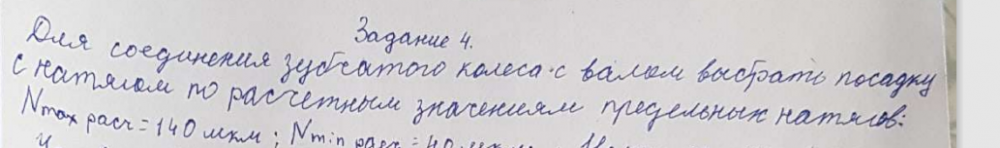 Задание 4.
Для соединения зубчатого колеса с валом выбрать посадку
с натягом по расчетным значениям предельных натягов:
Nmax расч = 140 мкм; Nmin